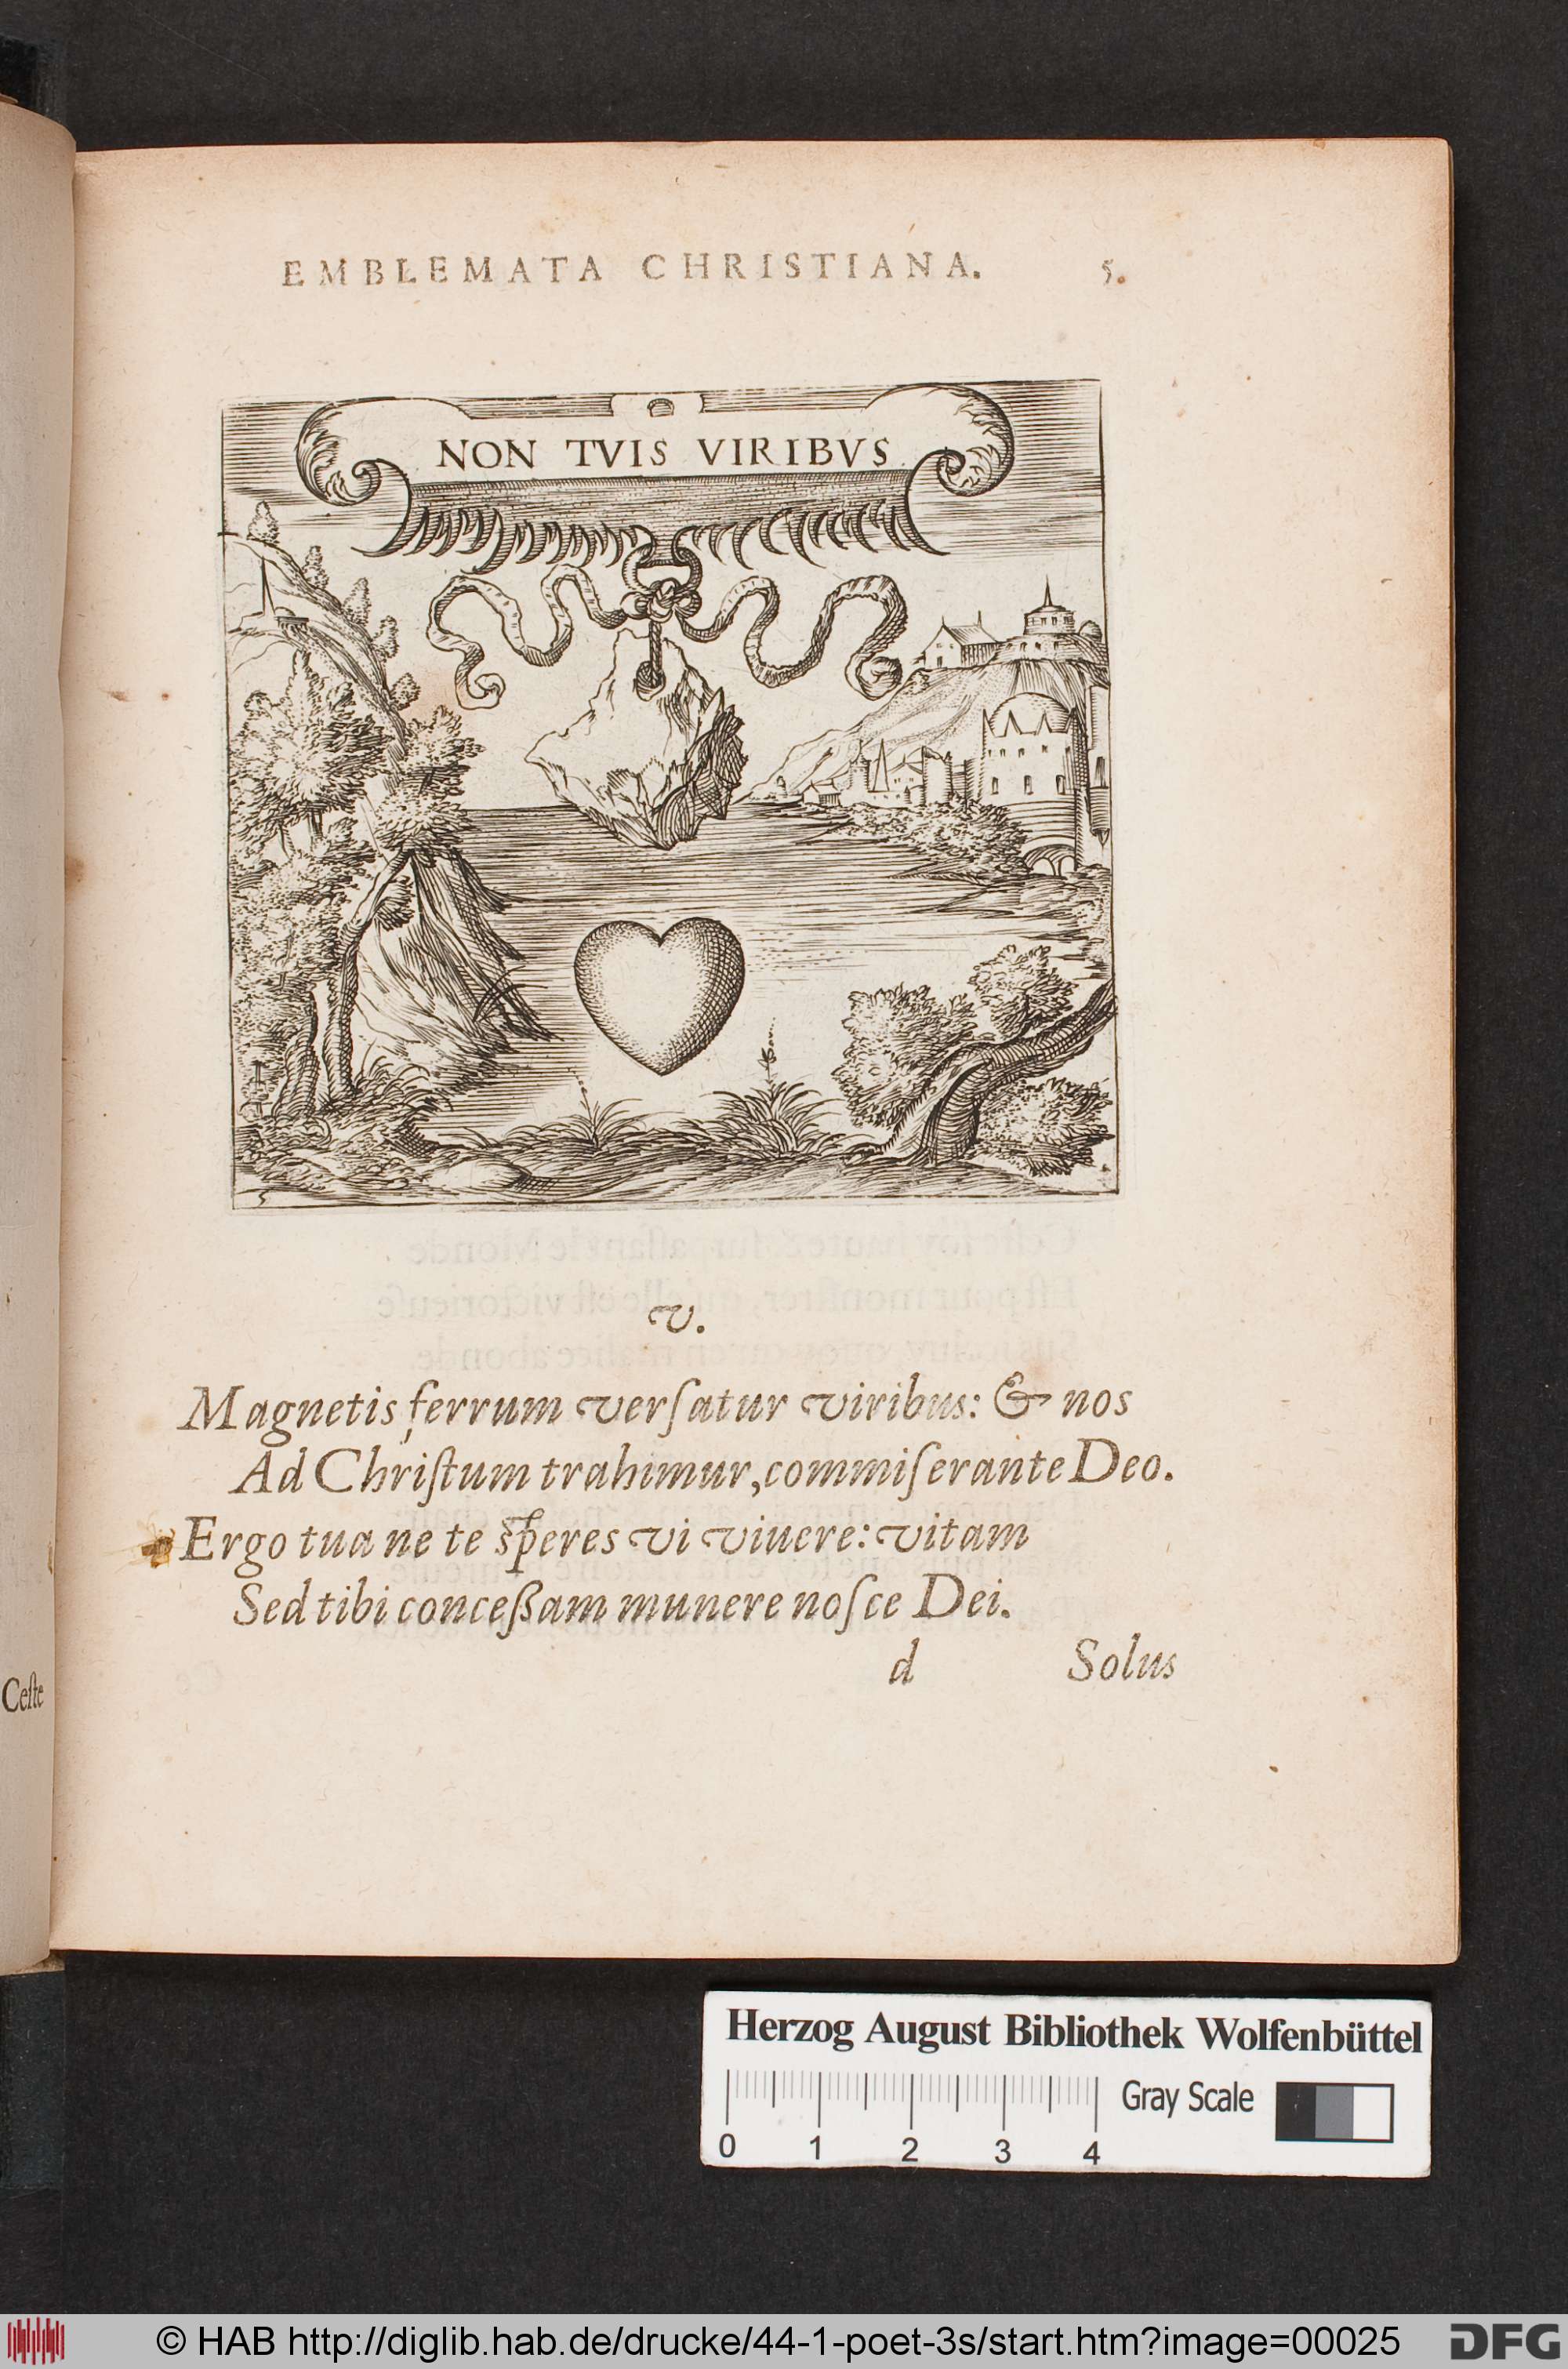 EMBLEMATA CHRISTIANA. 5.
NON TVIS VIRIBVS
5
v.
Magnetis ferrum verſatur viribus: & nos
Ad Chriſtum trahimur, commiſerante Deo.
Ergo tua ne te ſperes vi viuere: vitam
Sed tibi conceßam munere noſce Dei.
d Solus
Ceſte
Herzog August Bibliothek Wolfenbüttel
Gray Scale
0 1 2 3 4
© HAB http://diglib.hab.de/drucke/44-1-poet-3s/start.htm?image=00025
DFG